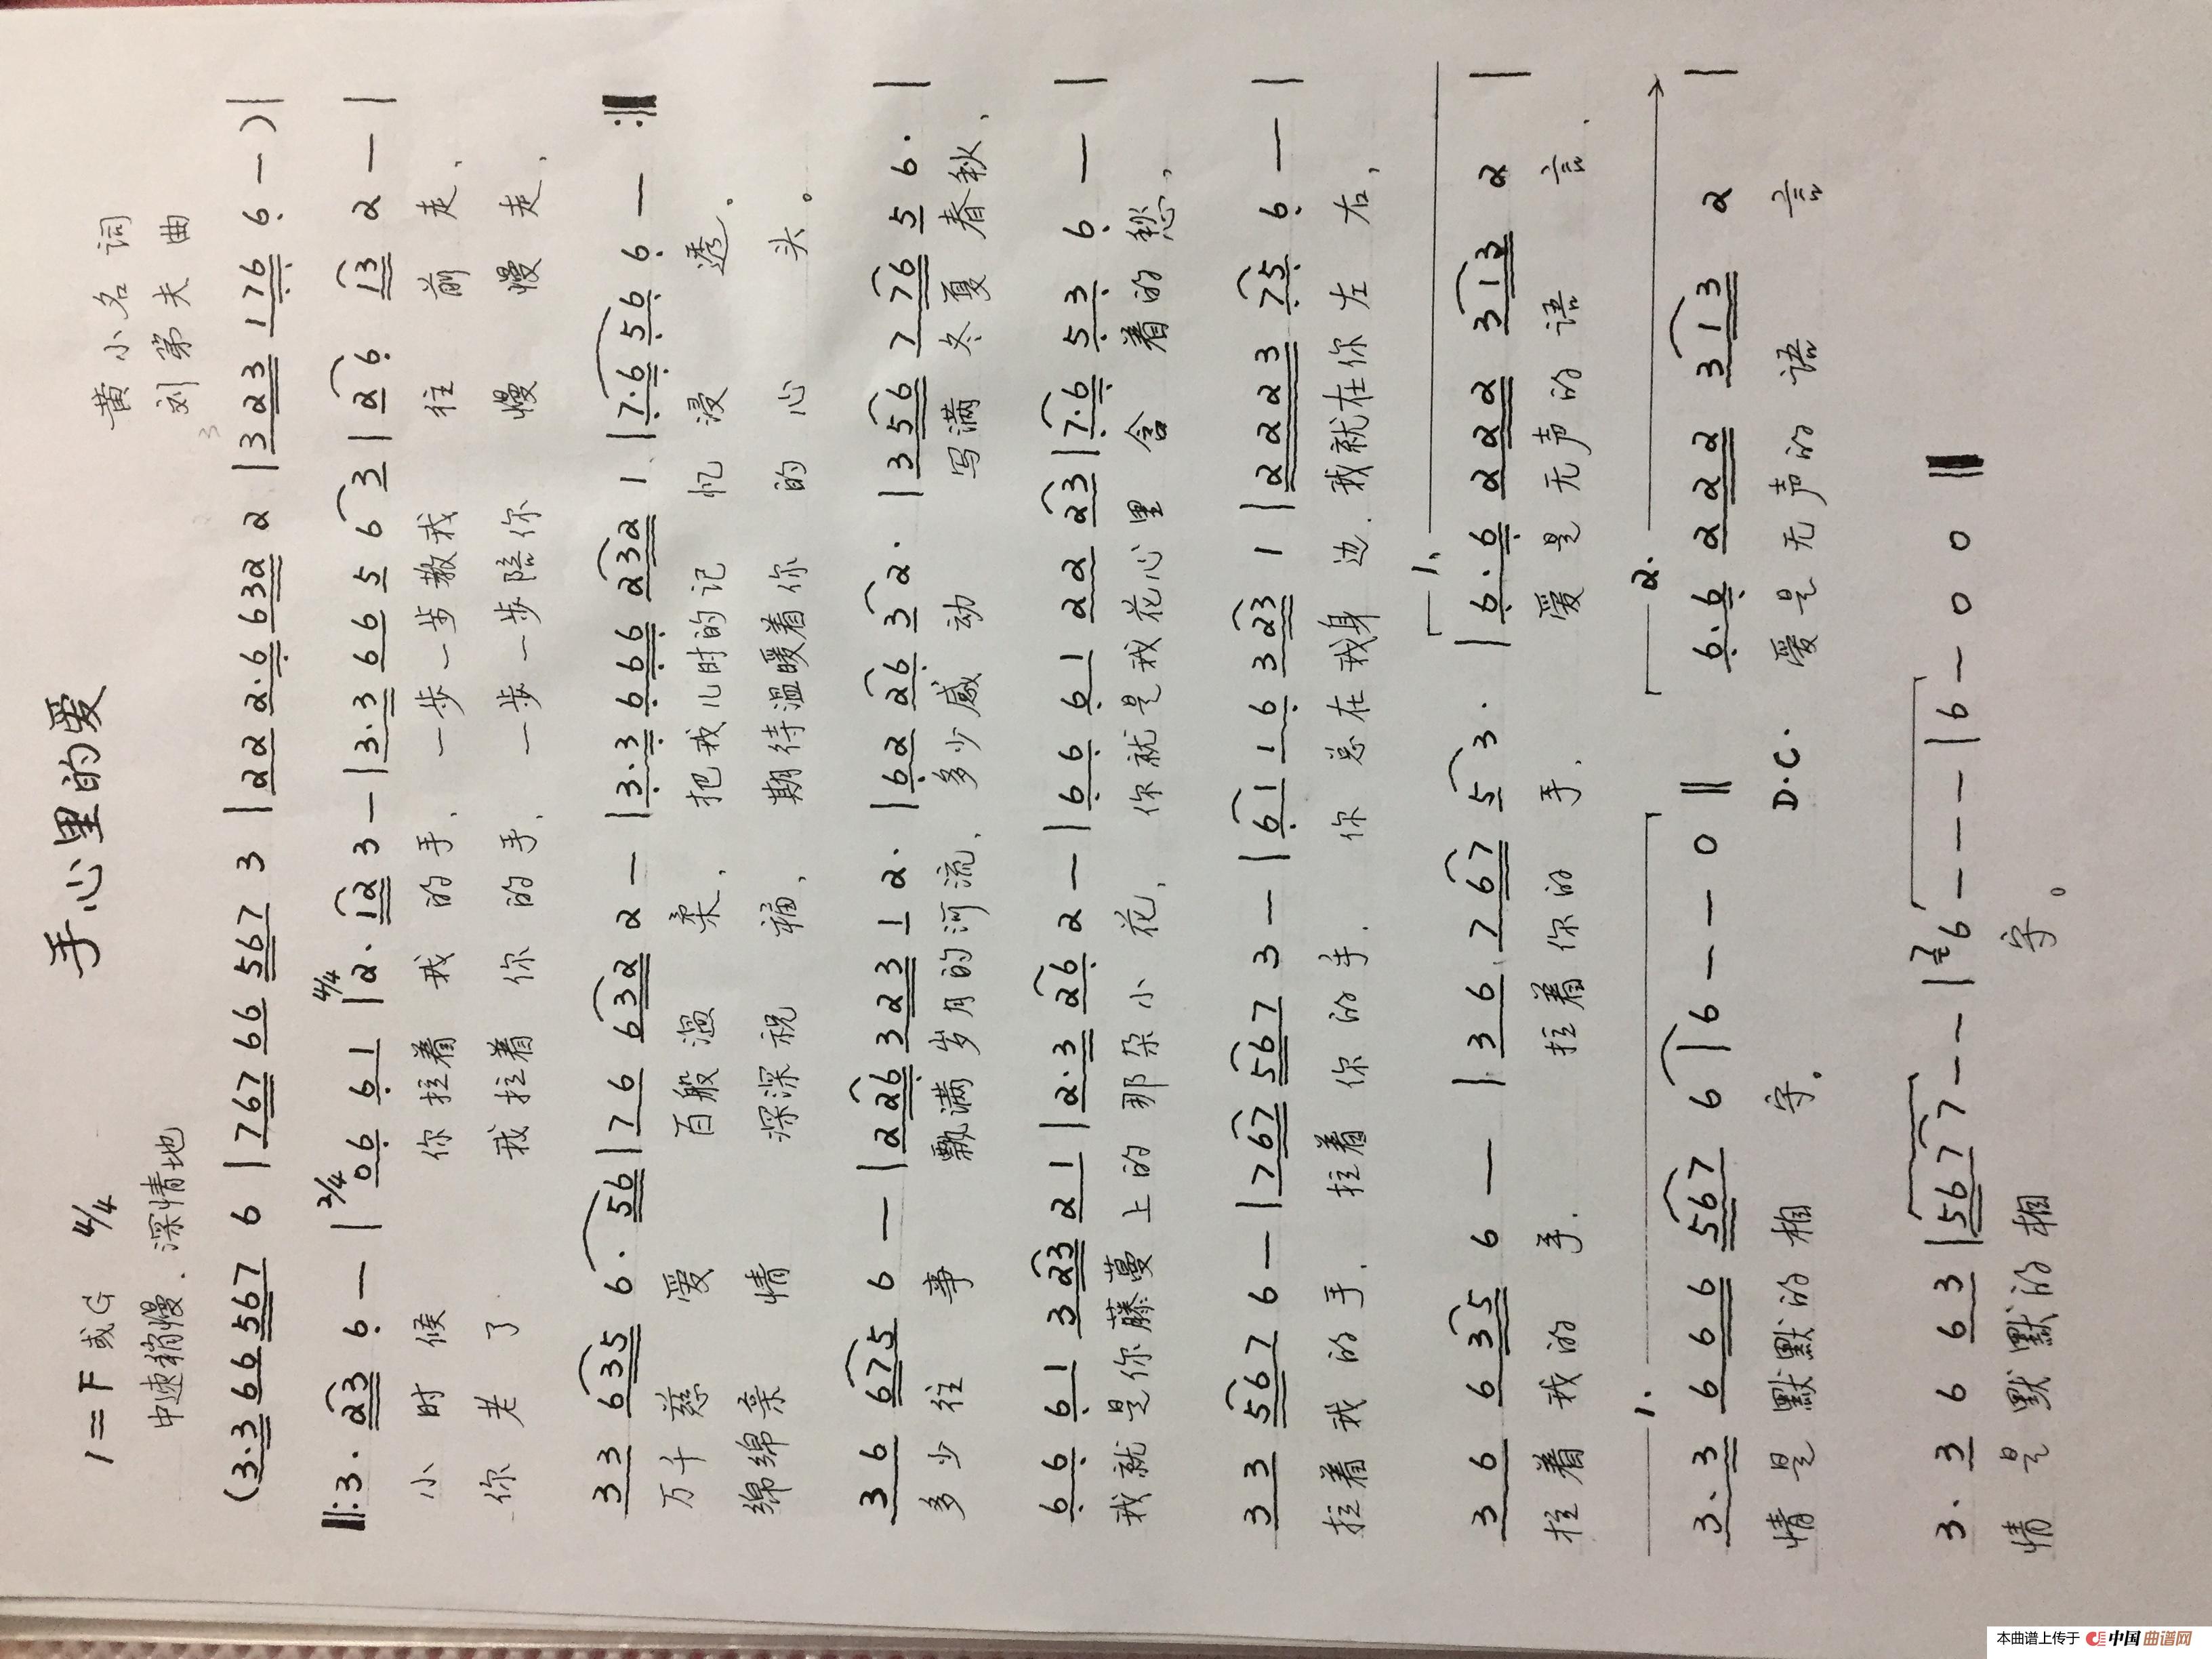 手心里的爱
1=F 或G 4/4
黄小名 词
中速稍慢、深情地
刘第夫 曲
(3·3 66 567 6 | 767 66 567 3 | 22 2·6 632 2 | 323 176 6 — )|
‖:3· 23 6 — | 2/4 06 61 | 4/4 2· 12 3 — | 3·3 66 5 6 3 | 26 13 2 — |
小时候 你拉着我的手、一步一步教我往前走、
你老了 我拉着你的手、一步一步陪你慢慢走、
33 635 6· 56 | 76 632 2 — | 3·3 666 232 1 | 7·6 56 6 — :‖
万千慈爱 百般温柔、把我儿时的记忆浸透。
绵绵亲情 深深祝福、期待温暖着你的心头。
36 675 6 — | 226 323 1 2· | 62 26 3 2· | 356 776 5 6· |
多少往事 飘满岁月的河流、多少感动 写满冬夏春秋、
66 61 323 21 | 2·3 26 2 — | 66 61 22 23 | 7·6 53 6 — |
我就是你藤蔓上的那朵小花、你就是我花心里含着的愁,
33 567 6 — | 767 567 3 — | 61 16 323 1 | 2223 75 6 — |
拉着我的手、拉着你的手、你总在我身边、我就在你左右,
1.
36 635 6 — | 36 767 5 3· | 6·6 222 313 2 |
拉着我的手、拉着你的手、爱是无声的语言、
1. 2.
3·3 666 567 6 | 6 — — 0 ‖ 6·6 222 313 2 |
情是默默的相守。 D.C. 爱是无声的语言
3· 3 6 63 | 567 7 — — | 6 — — — | 6 — 0 0 ‖
情是默默的相守。
本曲谱上传于 中国曲谱网